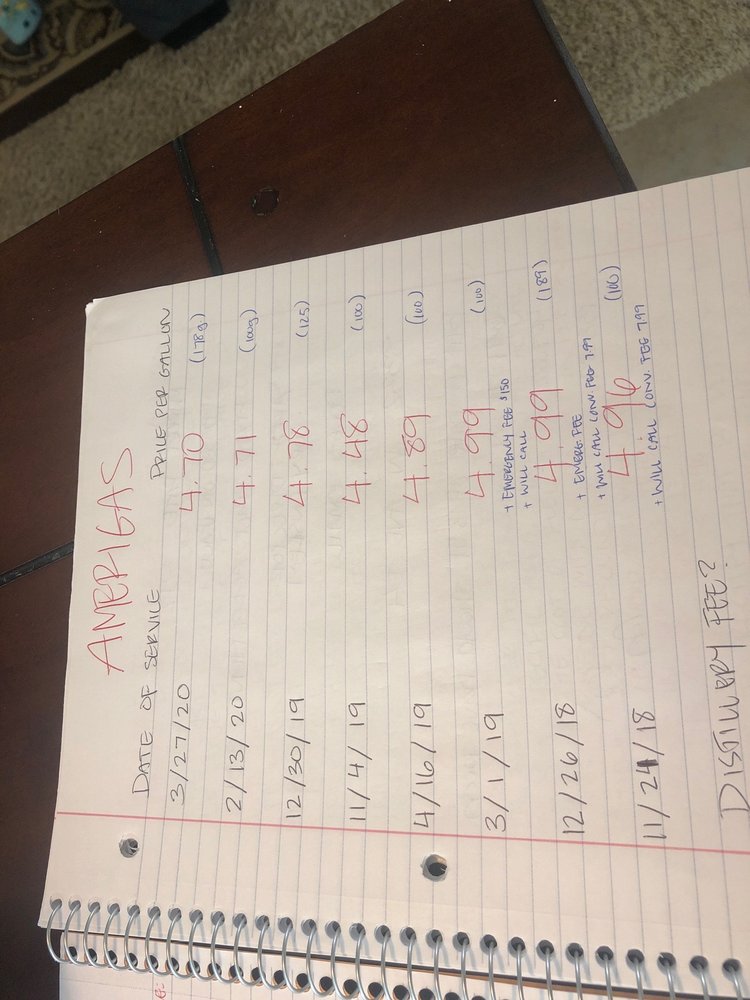 AMERIGAS
DATE OF SERVICE PRICE PER GALLON
3/27/20 4.70 (178g)
2/13/20 4.71 (100g)
12/30/19 4.78 (125)
11/4/19 4.48 (100)
4/16/19 4.89 (100)
3/1/19 4.99 (100)
+ EMERGENCY FEE $150
+ WILL CALL
12/26/18 4.99 (189)
+ EMERG. FEE
+ WILL CALL CONV FEE 7.99
11/24/18 4.96 (106)
+ WILL CALL CONV. FEE 7.99
DISTILLERY FEE?